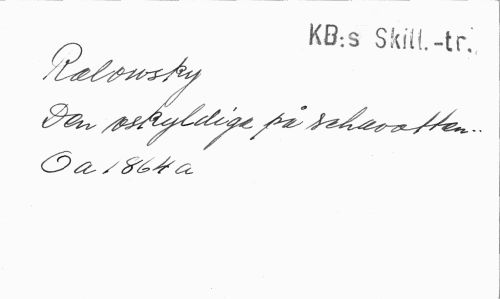 KB:s Skill.-tr.
Ralowsky
Den oskyldige på schavotten..
Oa 1864 a